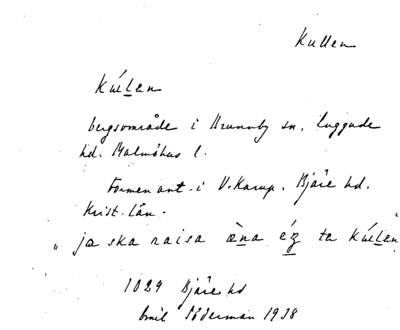 Kullen
kúlLen
bergsområde i Brunnby sn. Luggude
hd. Malmöhus l.
Formen ant. i V. Karup. Bjäre hd.
Krist. län.
"ja ska raisa æna éᶎ ta kúlLen"
1029 Bjäre hd
Emil Söderman 1938